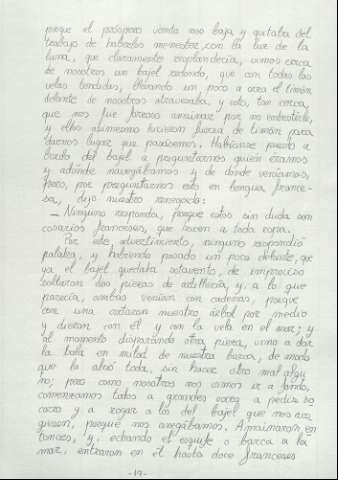 porque el próspero viento nos baja y quitaba del
trabajo de haberlos menester, con la luz de la
luna, que claramente resplandecía, vimos cerca
de nosotros un bajel redondo, que con todas las
velas tendidas, llevando un poco a orza el timón,
delante de nosotros atravesaba, y esto, tan cerca,
que nos fue forzoso amainar por no embestirle,
y ellos asimesmo hicieron fuerza de timón para
darnos lugar que pasásemos. Habíanse puesto a
bordo del bajel a preguntarnos quién éramos
y adónde navegábamos y de dónde veníamos,
pero, por preguntarnos esto en lengua france-
sa, dijo nuestro renegado:
— Ninguno responda, porque estos sin duda son
cosarios franceses, que hacen a toda ropa.
Por este advertimiento, ninguno respondió
palabra, y habiendo pasado un poco delante, que
ya el bajel quedaba sotavento, de improviso
soltaron dos piezas de artillería y, a lo que
parecía, ambas venían con cadenas, porque
con una cortaron nuestro árbol por medio
y dieron con él y con la vela en el mar; y
al momento disparando otra pieza, vino a dar
la bala en mitad de nuestra barca, de modo
que la abrió toda, sin hacer otro mal algu
no; pero como nosotros nos vimos ir a fondo,
comenzamos todos a grandes voces a pedir so
corro y a rogar a los del bajel que nos aco
giesen, porque nos anegábamos. Amainaron en
tonces, y, echando el esquife o barca a la
mar, entraron en él hasta doce franceses
-19-